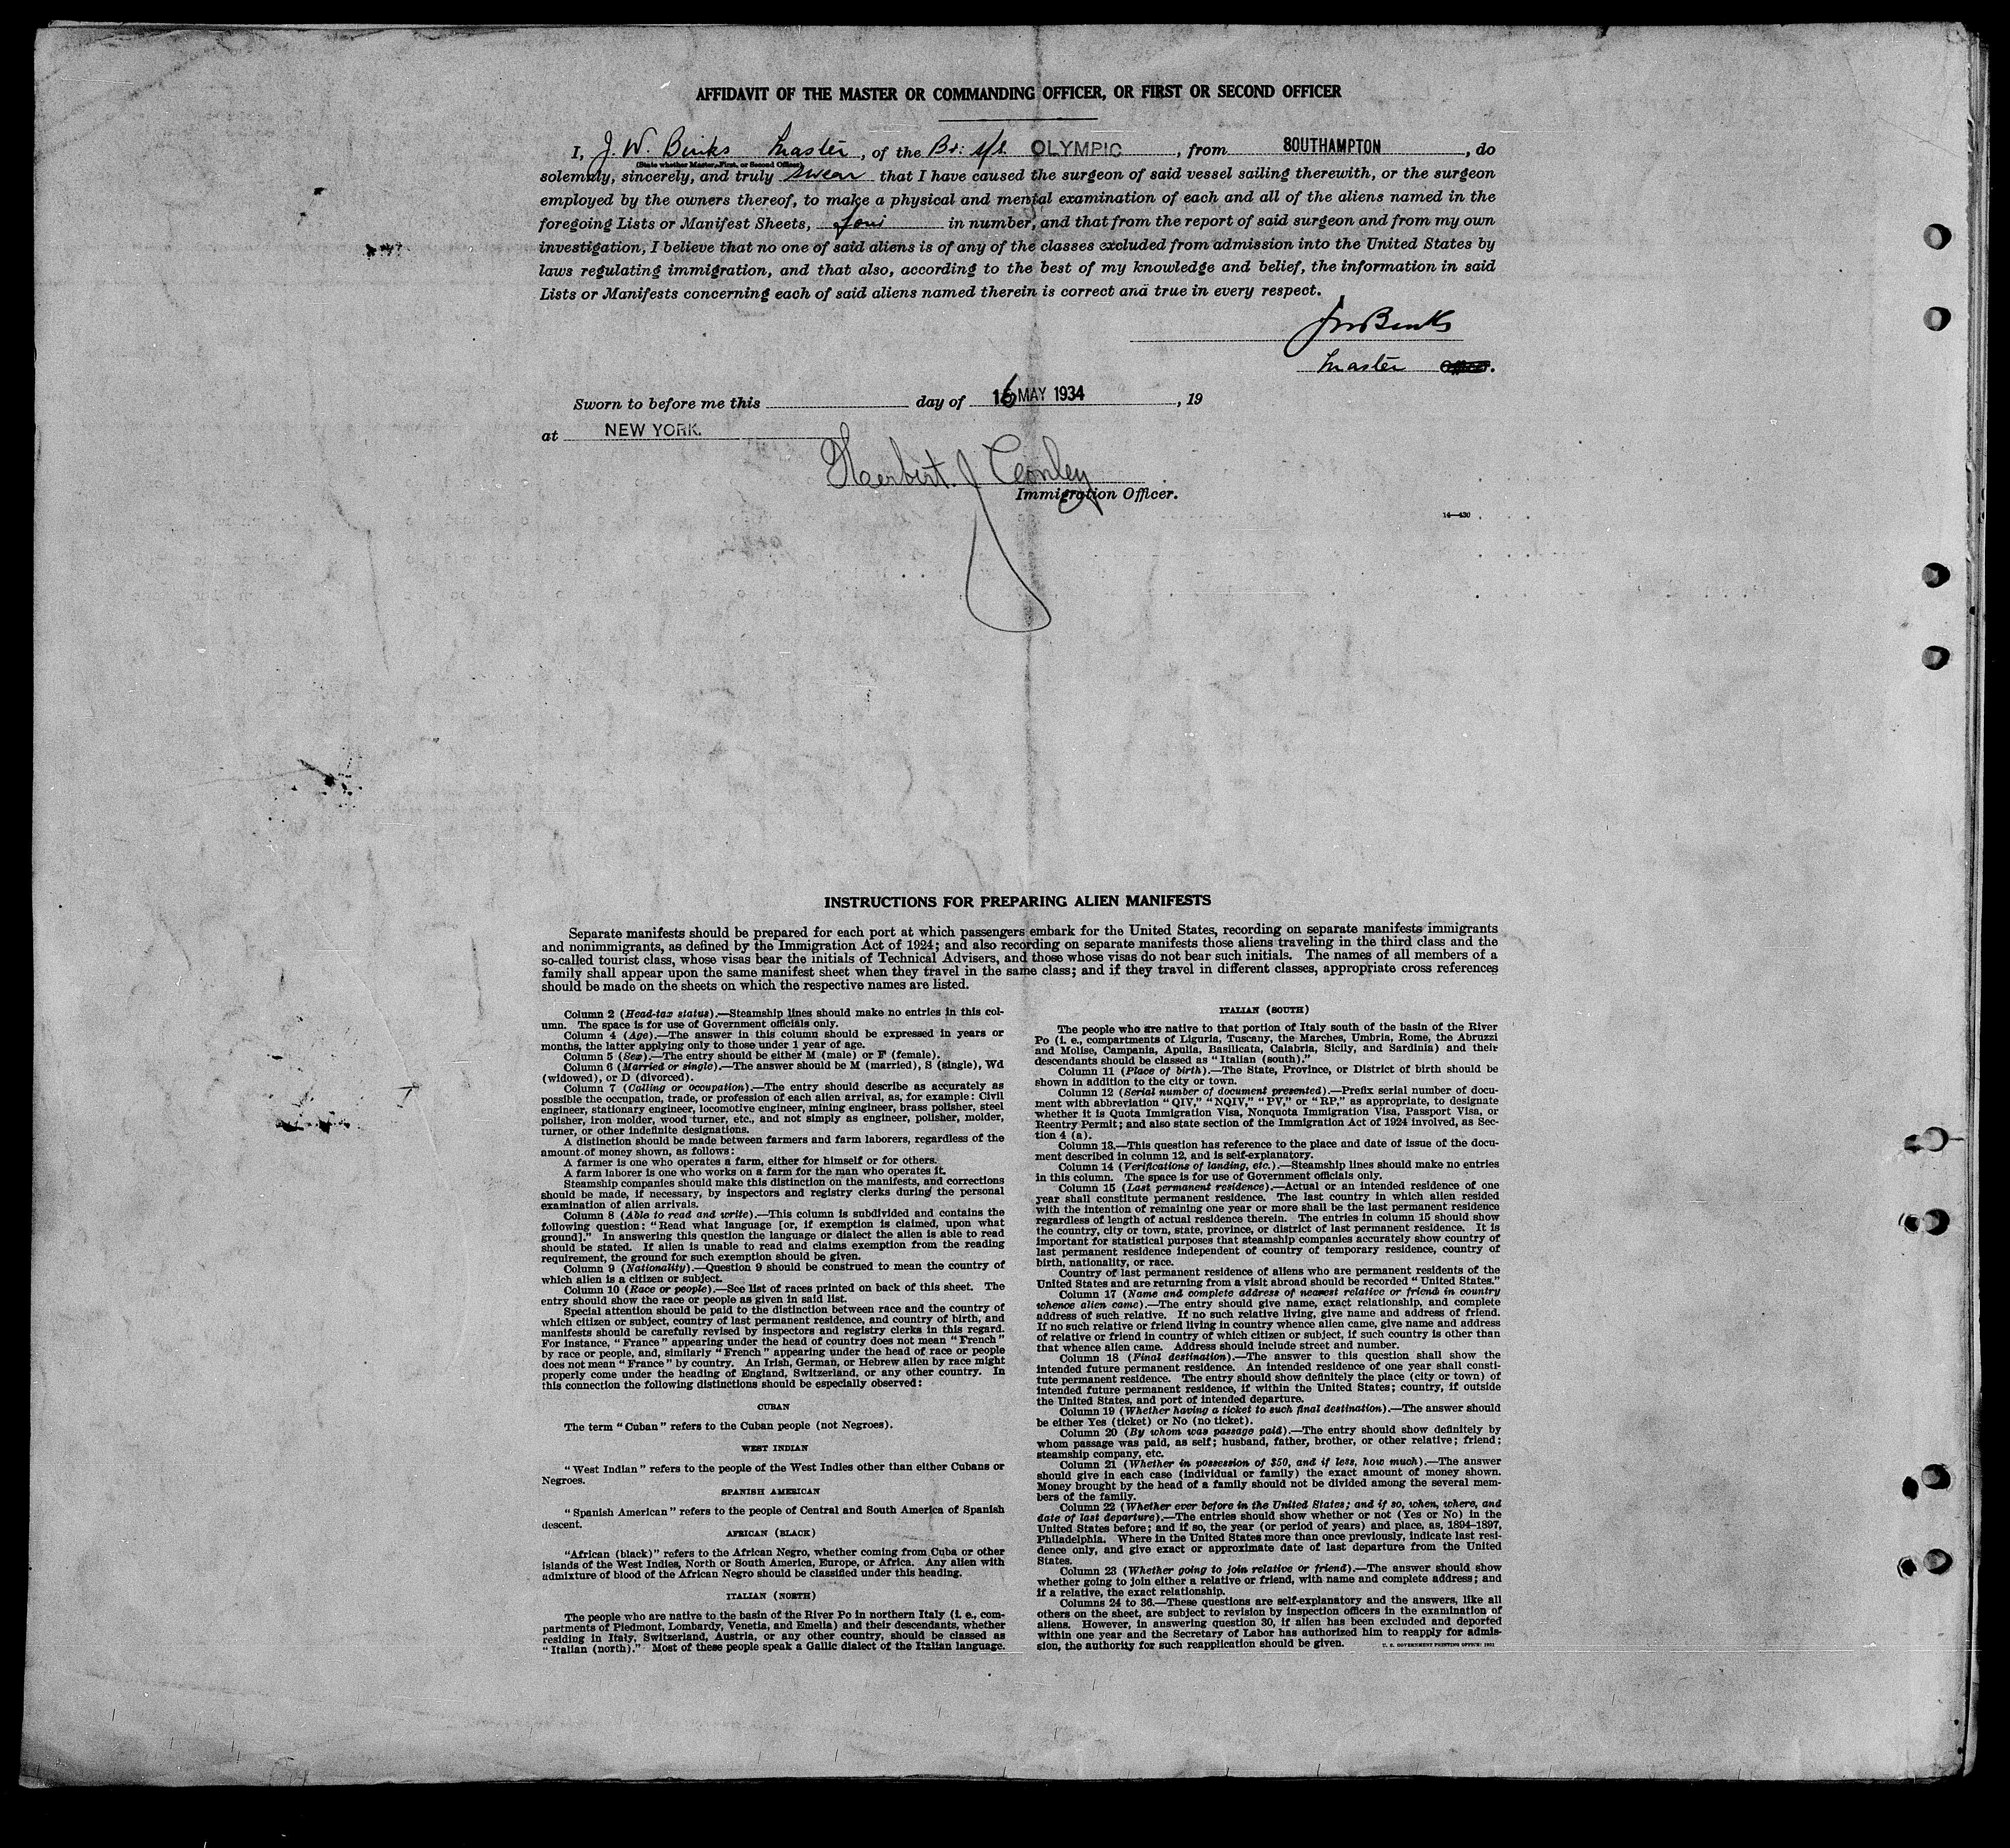 AFFIDAVIT OF THE MASTER OR COMMANDING OFFICER, OR FIRST OR SECOND OFFICER
I, J. W. Binks Master, of the Br: s/s. OLYMPIC, from SOUTHAMPTON, do
(State whether Master, First, or Second Officer)
solemnly, sincerely, and truly swear that I have caused the surgeon of said vessel sailing therewith, or the surgeon
employed by the owners thereof, to make a physical and mental examination of each and all of the aliens named in the
foregoing Lists or Manifest Sheets, four in number, and that from the report of said surgeon and from my own
investigation, I believe that no one of said aliens is of any of the classes excluded from admission into the United States by
laws regulating immigration, and that also, according to the best of my knowledge and belief, the information in said
Lists or Manifests concerning each of said aliens named therein is correct and true in every respect.
JW Binks
Master Officer.
Sworn to before me this day of 16 MAY 1934, 19
at NEW YORK.
Herbert J Conley
Immigration Officer.
14—430
INSTRUCTIONS FOR PREPARING ALIEN MANIFESTS
Separate manifests should be prepared for each port at which passengers embark for the United States, recording on separate manifests immigrants
and nonimmigrants, as defined by the Immigration Act of 1924; and also recording on separate manifests those aliens traveling in the third class and the
so-called tourist class, whose visas bear the initials of Technical Advisers, and those whose visas do not bear such initials. The names of all members of a
family shall appear upon the same manifest sheet when they travel in the same class; and if they travel in different classes, appropriate cross references
should be made on the sheets on which the respective names are listed.
Column 2 (Head-tax status).—Steamship lines should make no entries in this col-
umn. The space is for use of Government officials only.
Column 4 (Age).—The answer in this column should be expressed in years or
months, the latter applying only to those under 1 year of age.
Column 5 (Sex).—The entry should be either M (male) or F (female).
Column 6 (Married or single).—The answer should be M (married), S (single), Wd
(widowed), or D (divorced).
Column 7 (Calling or occupation).—The entry should describe as accurately as
possible the occupation, trade, or profession of each alien arrival, as, for example: Civil
engineer, stationary engineer, locomotive engineer, mining engineer, brass polisher, steel
polisher, iron molder, wood turner, etc., and not simply as engineer, polisher, molder,
turner, or other indefinite designations.
A distinction should be made between farmers and farm laborers, regardless of the
amount of money shown, as follows:
A farmer is one who operates a farm, either for himself or for others.
A farm laborer is one who works on a farm for the man who operates it.
Steamship companies should make this distinction on the manifests, and corrections
should be made, if necessary, by inspectors and registry clerks during the personal
examination of alien arrivals.
Column 8 (Able to read and write).—This column is subdivided and contains the
following question: "Read what language [or, if exemption is claimed, upon what
ground]." In answering this question the language or dialect the alien is able to read
should be stated. If alien is unable to read and claims exemption from the reading
requirement, the ground for such exemption should be given.
Column 9 (Nationality).—Question 9 should be construed to mean the country of
which alien is a citizen or subject.
Column 10 (Race or people).—See list of races printed on back of this sheet. The
entry should show the race or people as given in said list.
Special attention should be paid to the distinction between race and the country of
which citizen or subject, country of last permanent residence, and country of birth, and
manifests should be carefully revised by inspectors and registry clerks in this regard.
For instance, "France" appearing under the head of country does not mean "French"
by race or people, and, similarly "French" appearing under the head of race or people
does not mean "France" by country. An Irish, German, or Hebrew alien by race might
properly come under the heading of England, Switzerland, or any other country. In
this connection the following distinctions should be especially observed:
CUBAN
The term "Cuban" refers to the Cuban people (not Negroes).
WEST INDIAN
"West Indian" refers to the people of the West Indies other than either Cubans or
Negroes.
SPANISH AMERICAN
"Spanish American" refers to the people of Central and South America of Spanish
descent.
AFRICAN (BLACK)
"African (black)" refers to the African Negro, whether coming from Cuba or other
islands of the West Indies, North or South America, Europe, or Africa. Any alien with
admixture of blood of the African Negro should be classified under this heading.
ITALIAN (NORTH)
The people who are native to the basin of the River Po in northern Italy (i. e., com-
partments of Piedmont, Lombardy, Venetia, and Emelia) and their descendants, whether
residing in Italy, Switzerland, Austria, or any other country, should be classed as
"Italian (north)." Most of these people speak a Gallic dialect of the Italian language.
ITALIAN (SOUTH)
The people who are native to that portion of Italy south of the basin of the River
Po (i. e., compartments of Liguria, Tuscany, the Marches, Umbria, Rome, the Abruzzi
and Molise, Campania, Apulia, Basilicata, Calabria, Sicily, and Sardinia) and their
descendants should be classed as "Italian (south)."
Column 11 (Place of birth).—The State, Province, or District of birth should be
shown in addition to the city or town.
Column 12 (Serial number of document presented).—Prefix serial number of docu-
ment with abbreviation "QIV," "NQIV," "PV," or "RP," as appropriate, to designate
whether it is Quota Immigration Visa, Nonquota Immigration Visa, Passport Visa, or
Reentry Permit; and also state section of the Immigration Act of 1924 involved, as Sec-
tion 4 (a).
Column 13.—This question has reference to the place and date of issue of the docu-
ment described in column 12, and is self-explanatory.
Column 14 (Verifications of landing, etc.).—Steamship lines should make no entries
in this column. The space is for use of Government officials only.
Column 15 (Last permanent residence).—Actual or an intended residence of one
year shall constitute permanent residence. The last country in which alien resided
with the intention of remaining one year or more shall be the last permanent residence
regardless of length of actual residence therein. The entries in column 15 should show
the country, city or town, state, province, or district of last permanent residence. It is
important for statistical purposes that steamship companies accurately show country of
last permanent residence independent of country of temporary residence, country of
birth, nationality, or race.
Country of last permanent residence of aliens who are permanent residents of the
United States and are returning from a visit abroad should be recorded "United States."
Column 17 (Name and complete address of nearest relative or friend in country
whence alien came).—The entry should give name, exact relationship, and complete
address of such relative. If no such relative living, give name and address of friend.
If no such relative or friend living in country whence alien came, give name and address
of relative or friend in country of which citizen or subject, if such country is other than
that whence alien came. Address should include street and number.
Column 18 (Final destination).—The answer to this question shall show the
intended future permanent residence. An intended residence of one year shall consti-
tute permanent residence. The entry should show definitely the place (city or town) of
intended future permanent residence, if within the United States; country, if outside
the United States, and port of intended departure.
Column 19 (Whether having a ticket to such final destination).—The answer should
be either Yes (ticket) or No (no ticket).
Column 20 (By whom was passage paid).—The entry should show definitely by
whom passage was paid, as self; husband, father, brother, or other relative; friend;
steamship company, etc.
Column 21 (Whether in possession of $50, and if less, how much).—The answer
should give in each case (individual or family) the exact amount of money shown.
Money brought by the head of a family should not be divided among the several mem-
bers of the family.
Column 22 (Whether ever before in the United States; and if so, when, where, and
date of last departure).—The entries should show whether or not (Yes or No) in the
United States before; and if so, the year (or period of years) and place, as, 1894–1897,
Philadelphia. Where in the United States more than once previously, indicate last resi-
dence only, and give exact or approximate date of last departure from the United
States.
Column 23 (Whether going to join relative or friend).—The answer should show
whether going to join either a relative or friend, with name and complete address; and
if a relative, the exact relationship.
Columns 24 to 36.—These questions are self-explanatory and the answers, like all
others on the sheet, are subject to revision by inspection officers in the examination of
aliens. However, in answering question 30, if alien has been excluded and deported
within one year and the Secretary of Labor has authorized him to reapply for admis-
sion, the authority for such reapplication should be given.
U. S. GOVERNMENT PRINTING OFFICE: 1931